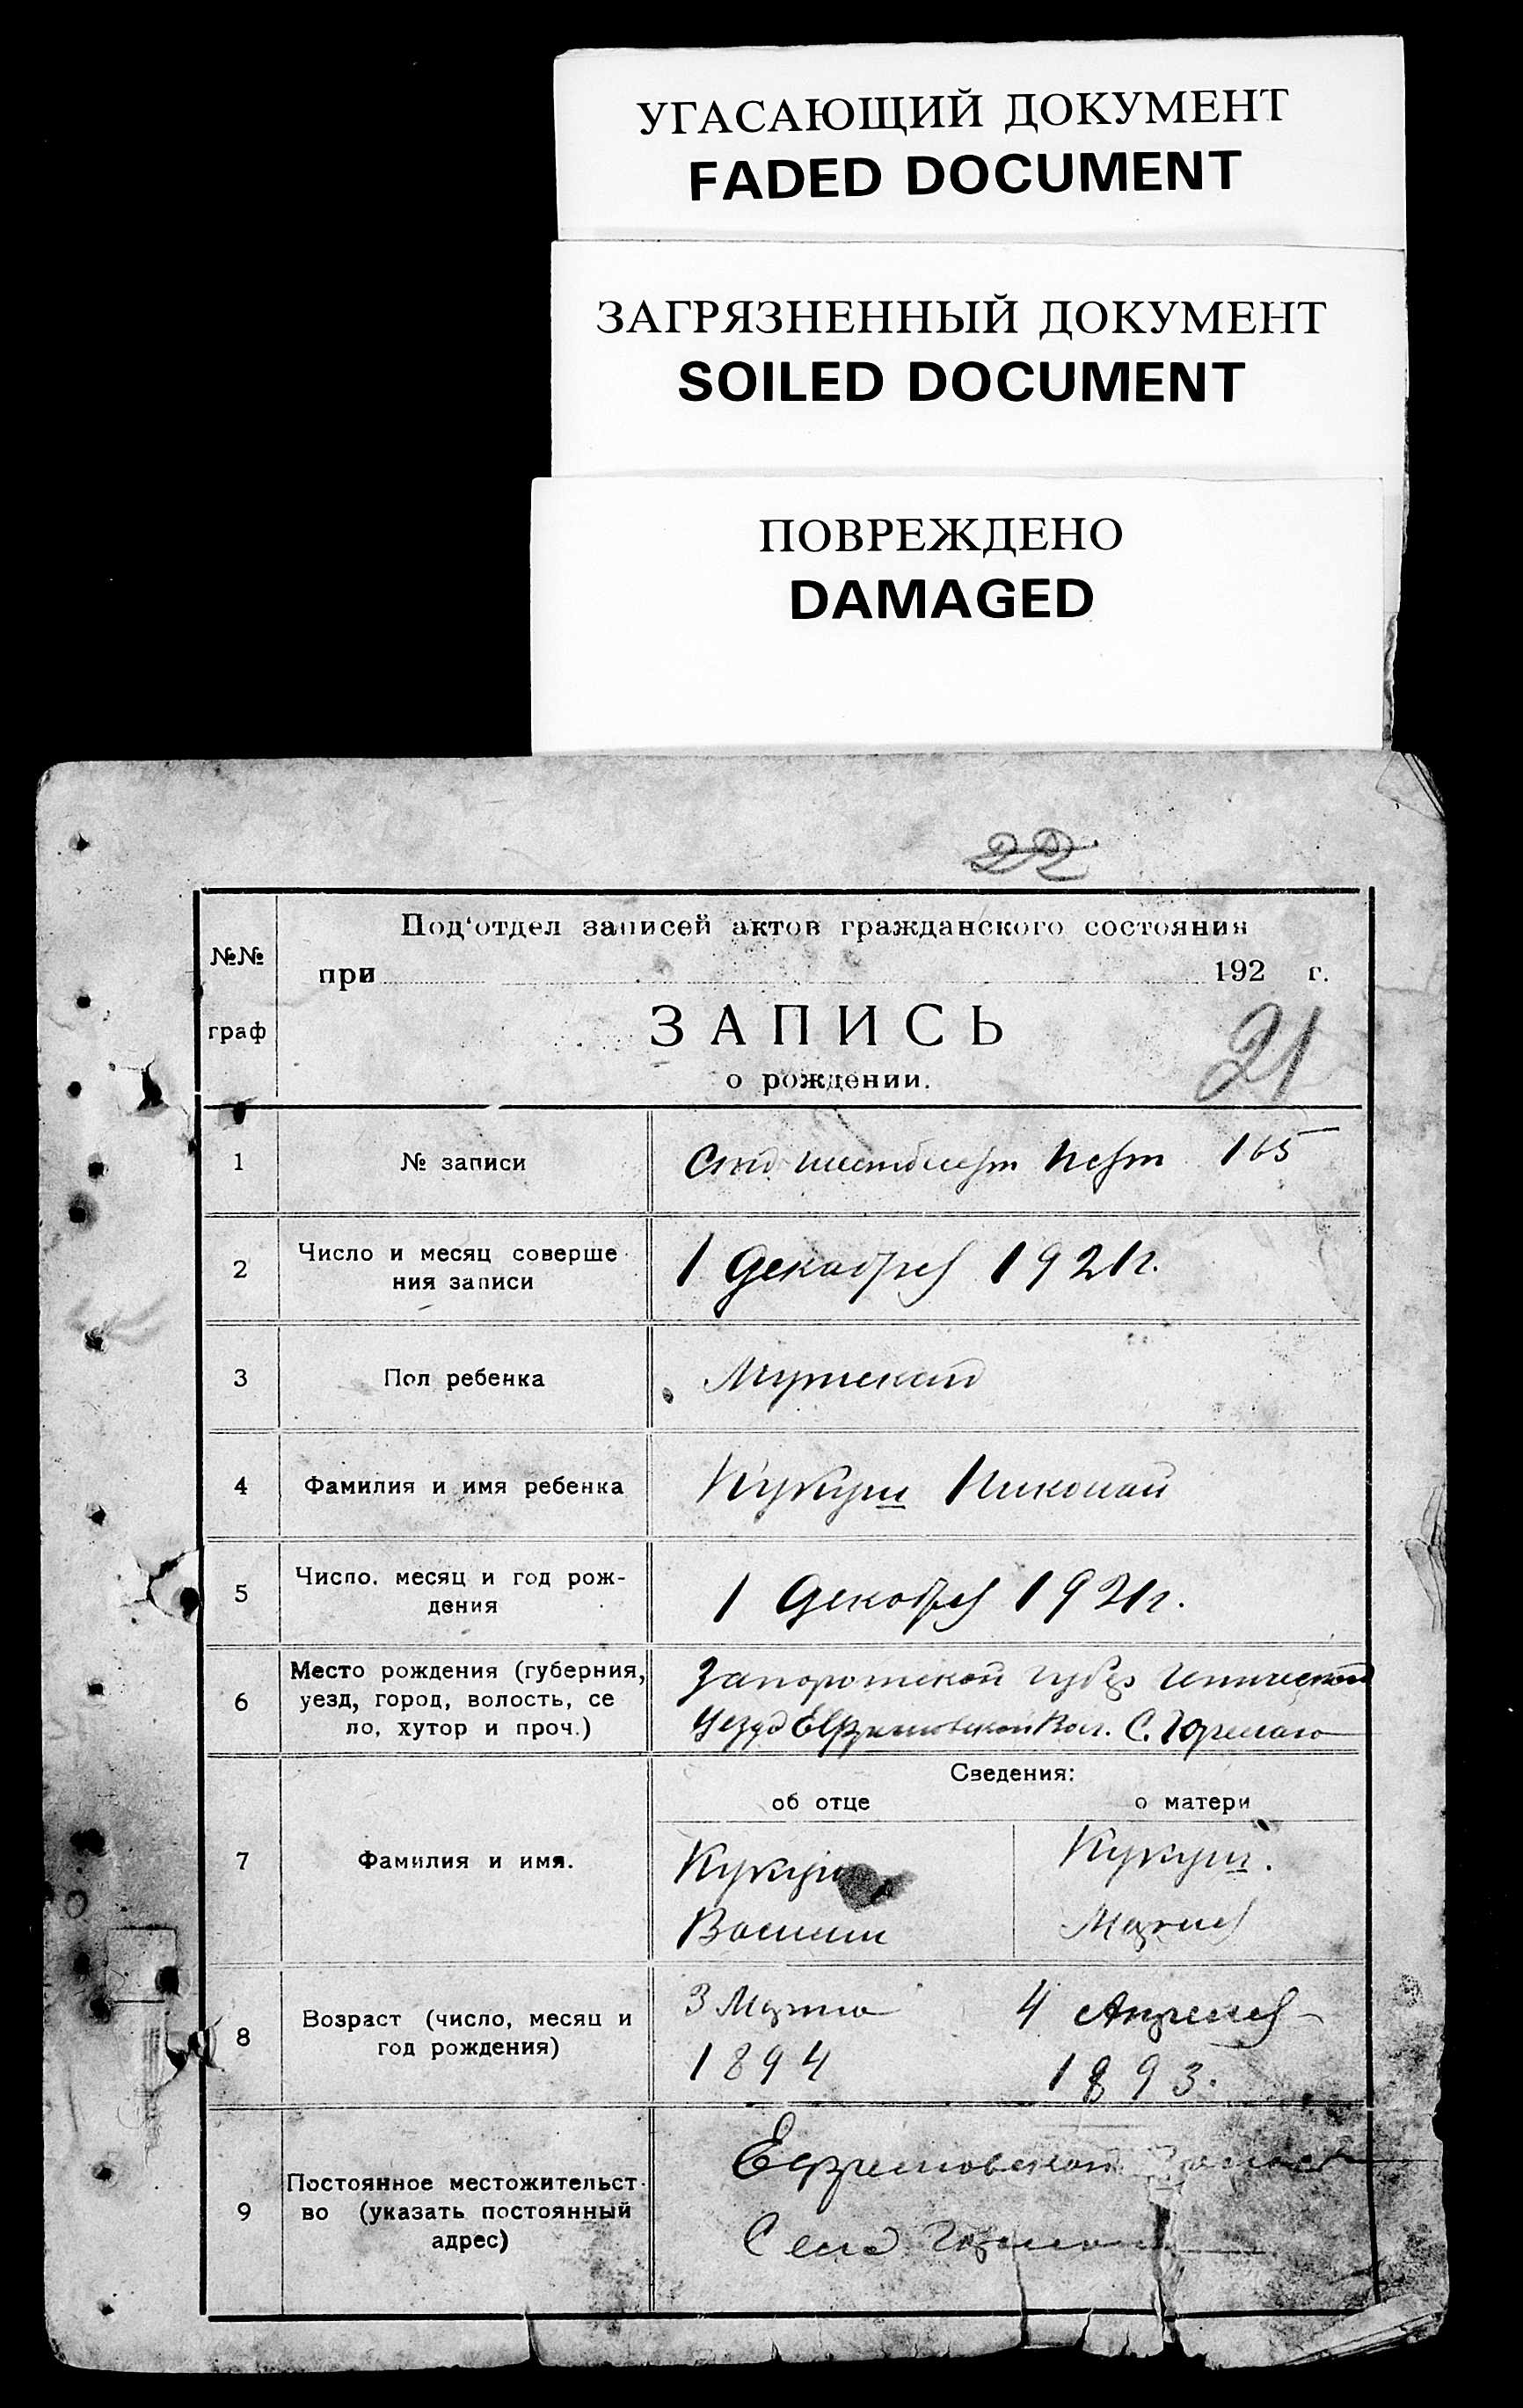 УГАСАЮЩИЙ ДОКУМЕНТ
FADED DOCUMENT
ЗАГРЯЗНЕННЫЙ ДОКУМЕНТ
SOILED DOCUMENT
ПОВРЕЖДЕНО
DAMAGED
22
№№
граф
Под‘отдел записей актов гражданского состояния
при 192 г.
ЗАПИСЬ
21
о рождении.
1
№ записи
Сто шестьдесят пять 165
2
Число и месяц соверше
ния записи
1 Декабря 1921г.
3
Пол ребенка
Мужской
4
Фамилия и имя ребенка
Кукуш Николай
5
Число. месяц и год рож-
дения
1 Декабря 1921г.
6
Место рождения (губерния,
уезд, город, волость, се
ло, хутор и проч.)
Запорожской губер
Уезд Ефремовской Вол. С.
Сведения:
об отце
о матери
7
Фамилия и имя.
Кукуш
Василий
Кукуш.
Мария
8
Возраст (число, месяц и
год рождения)
3 Марта
1894
4 Апреля
1893.
9
Постоянное местожительст-
во (указать постоянный
адрес)
Ефремовской
Село